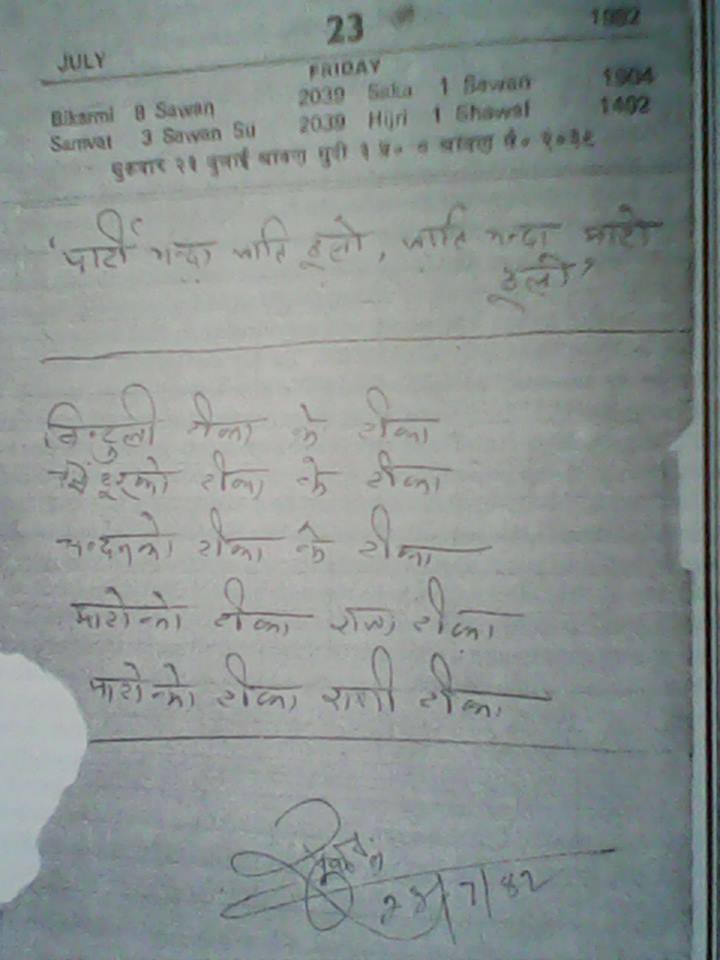 23
1982
JULY
FRIDAY
Bikarmi 8 Sawan 2039 Saka 1 Sawan 1904
Samvat 3 Sawan Su 2039 Hijri 1 Shawal 1402
'पार्टी भन्दा जाति ठूलो, जाति भन्दा माटो
ठूलो'
बिन्दुली टीका के टीका
सिंदूरको टीका के टीका
चन्दनको टीका के टीका
माटोको टीका राजा टीका
माटोको टीका रानी टीका
23/7/82